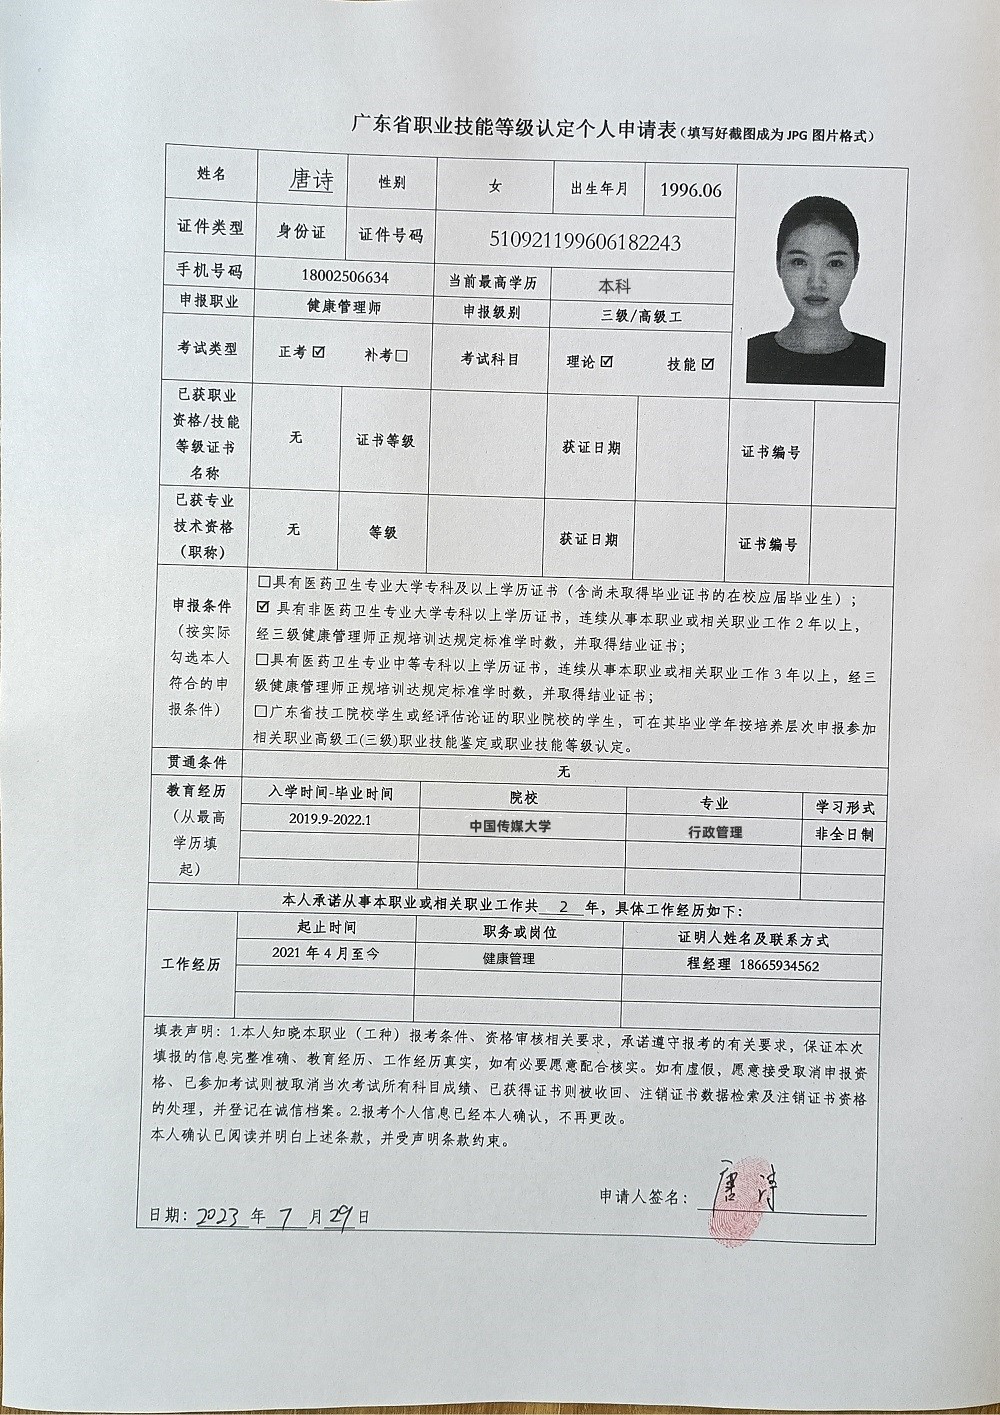 广东省职业技能等级认定个人申请表（填写好截图成为 JPG 图片格式）
姓名 唐诗 性别 女 出生年月 1996.06
证件类型 身份证 证件号码 510921199606182243
手机号码 18002506634 当前最高学历 本科
申报职业 健康管理师 申报级别 三级/高级工
考试类型 正考☑ 补考□ 考试科目 理论☑ 技能☑
已获职业
资格/技能
等级证书
名称
无 证书等级 获证日期 证书编号
已获专业
技术资格
（职称）
无 等级 获证日期 证书编号
申报条件
（按实际
勾选本人
符合的申
报条件）
□具有医药卫生专业大学专科及以上学历证书（含尚未取得毕业证书的在校应届毕业生）；
☑ 具有非医药卫生专业大学专科以上学历证书，连续从事本职业或相关职业工作 2 年以上，
经三级健康管理师正规培训达规定标准学时数，并取得结业证书；
□具有医药卫生专业中等专科以上学历证书，连续从事本职业或相关职业工作 3 年以上，经三
级健康管理师正规培训达规定标准学时数，并取得结业证书；
□广东省技工院校学生或经评估论证的职业院校的学生，可在其毕业学年按培养层次申报参加
相关职业高级工(三级)职业技能鉴定或职业技能等级认定。
贯通条件 无
教育经历
（从最高
学历填
起）
入学时间-毕业时间 院校 专业 学习形式
2019.9-2022.1 中国传媒大学 行政管理 非全日制
本人承诺从事本职业或相关职业工作共 2 年，具体工作经历如下：
工作经历
起止时间 职务或岗位 证明人姓名及联系方式
2021 年 4 月至今 健康管理 程经理 18665934562
填表声明：1.本人知晓本职业（工种）报考条件、资格审核相关要求，承诺遵守报考的有关要求，保证本次
填报的信息完整准确、教育经历、工作经历真实，如有必要愿意配合核实。如有虚假，愿意接受取消申报资
格、已参加考试则被取消当次考试所有科目成绩、已获得证书则被收回、注销证书数据检索及注销证书资格
的处理，并登记在诚信档案。2.报考个人信息已经本人确认，不再更改。
本人确认已阅读并明白上述条款，并受声明条款约束。
申请人签名：唐诗
日期：2023 年 7 月 29 日